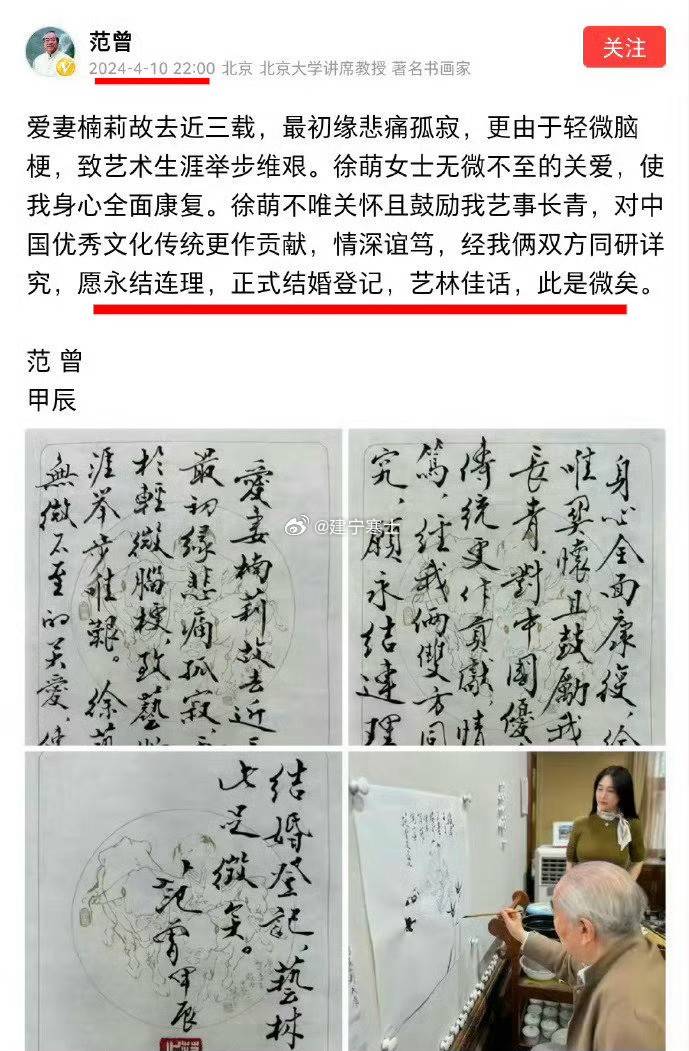 范曾
关注
2024-4-10 22:00 北京 北京大学讲席教授 著名书画家
爱妻楠莉故去近三载，最初缘悲痛孤寂，更由于轻微脑
梗，致艺术生涯举步维艰。徐萌女士无微不至的关爱，使
我身心全面康复。徐萌不唯关怀且鼓励我艺事长青，对中
国优秀文化传统更作贡献，情深谊笃，经我俩双方同研详
究，愿永结连理，正式结婚登记，艺林佳话，此是微矣。
范 曾
甲辰
愛妻楠莉故去近三
最初緣悲痛孤寂，
於輕微腦梗，致藝
涯举步唯艱。徐萌
無微不至的关爱，使
@建宁寒士
身心全面康復，徐
唯関懷且鼓勵我
長青，對中國優
傳統更作貢獻，情
篤，经我俩雙方同
究，願永结連理
结婚登記，藝林
此是微矣。
范曾甲辰